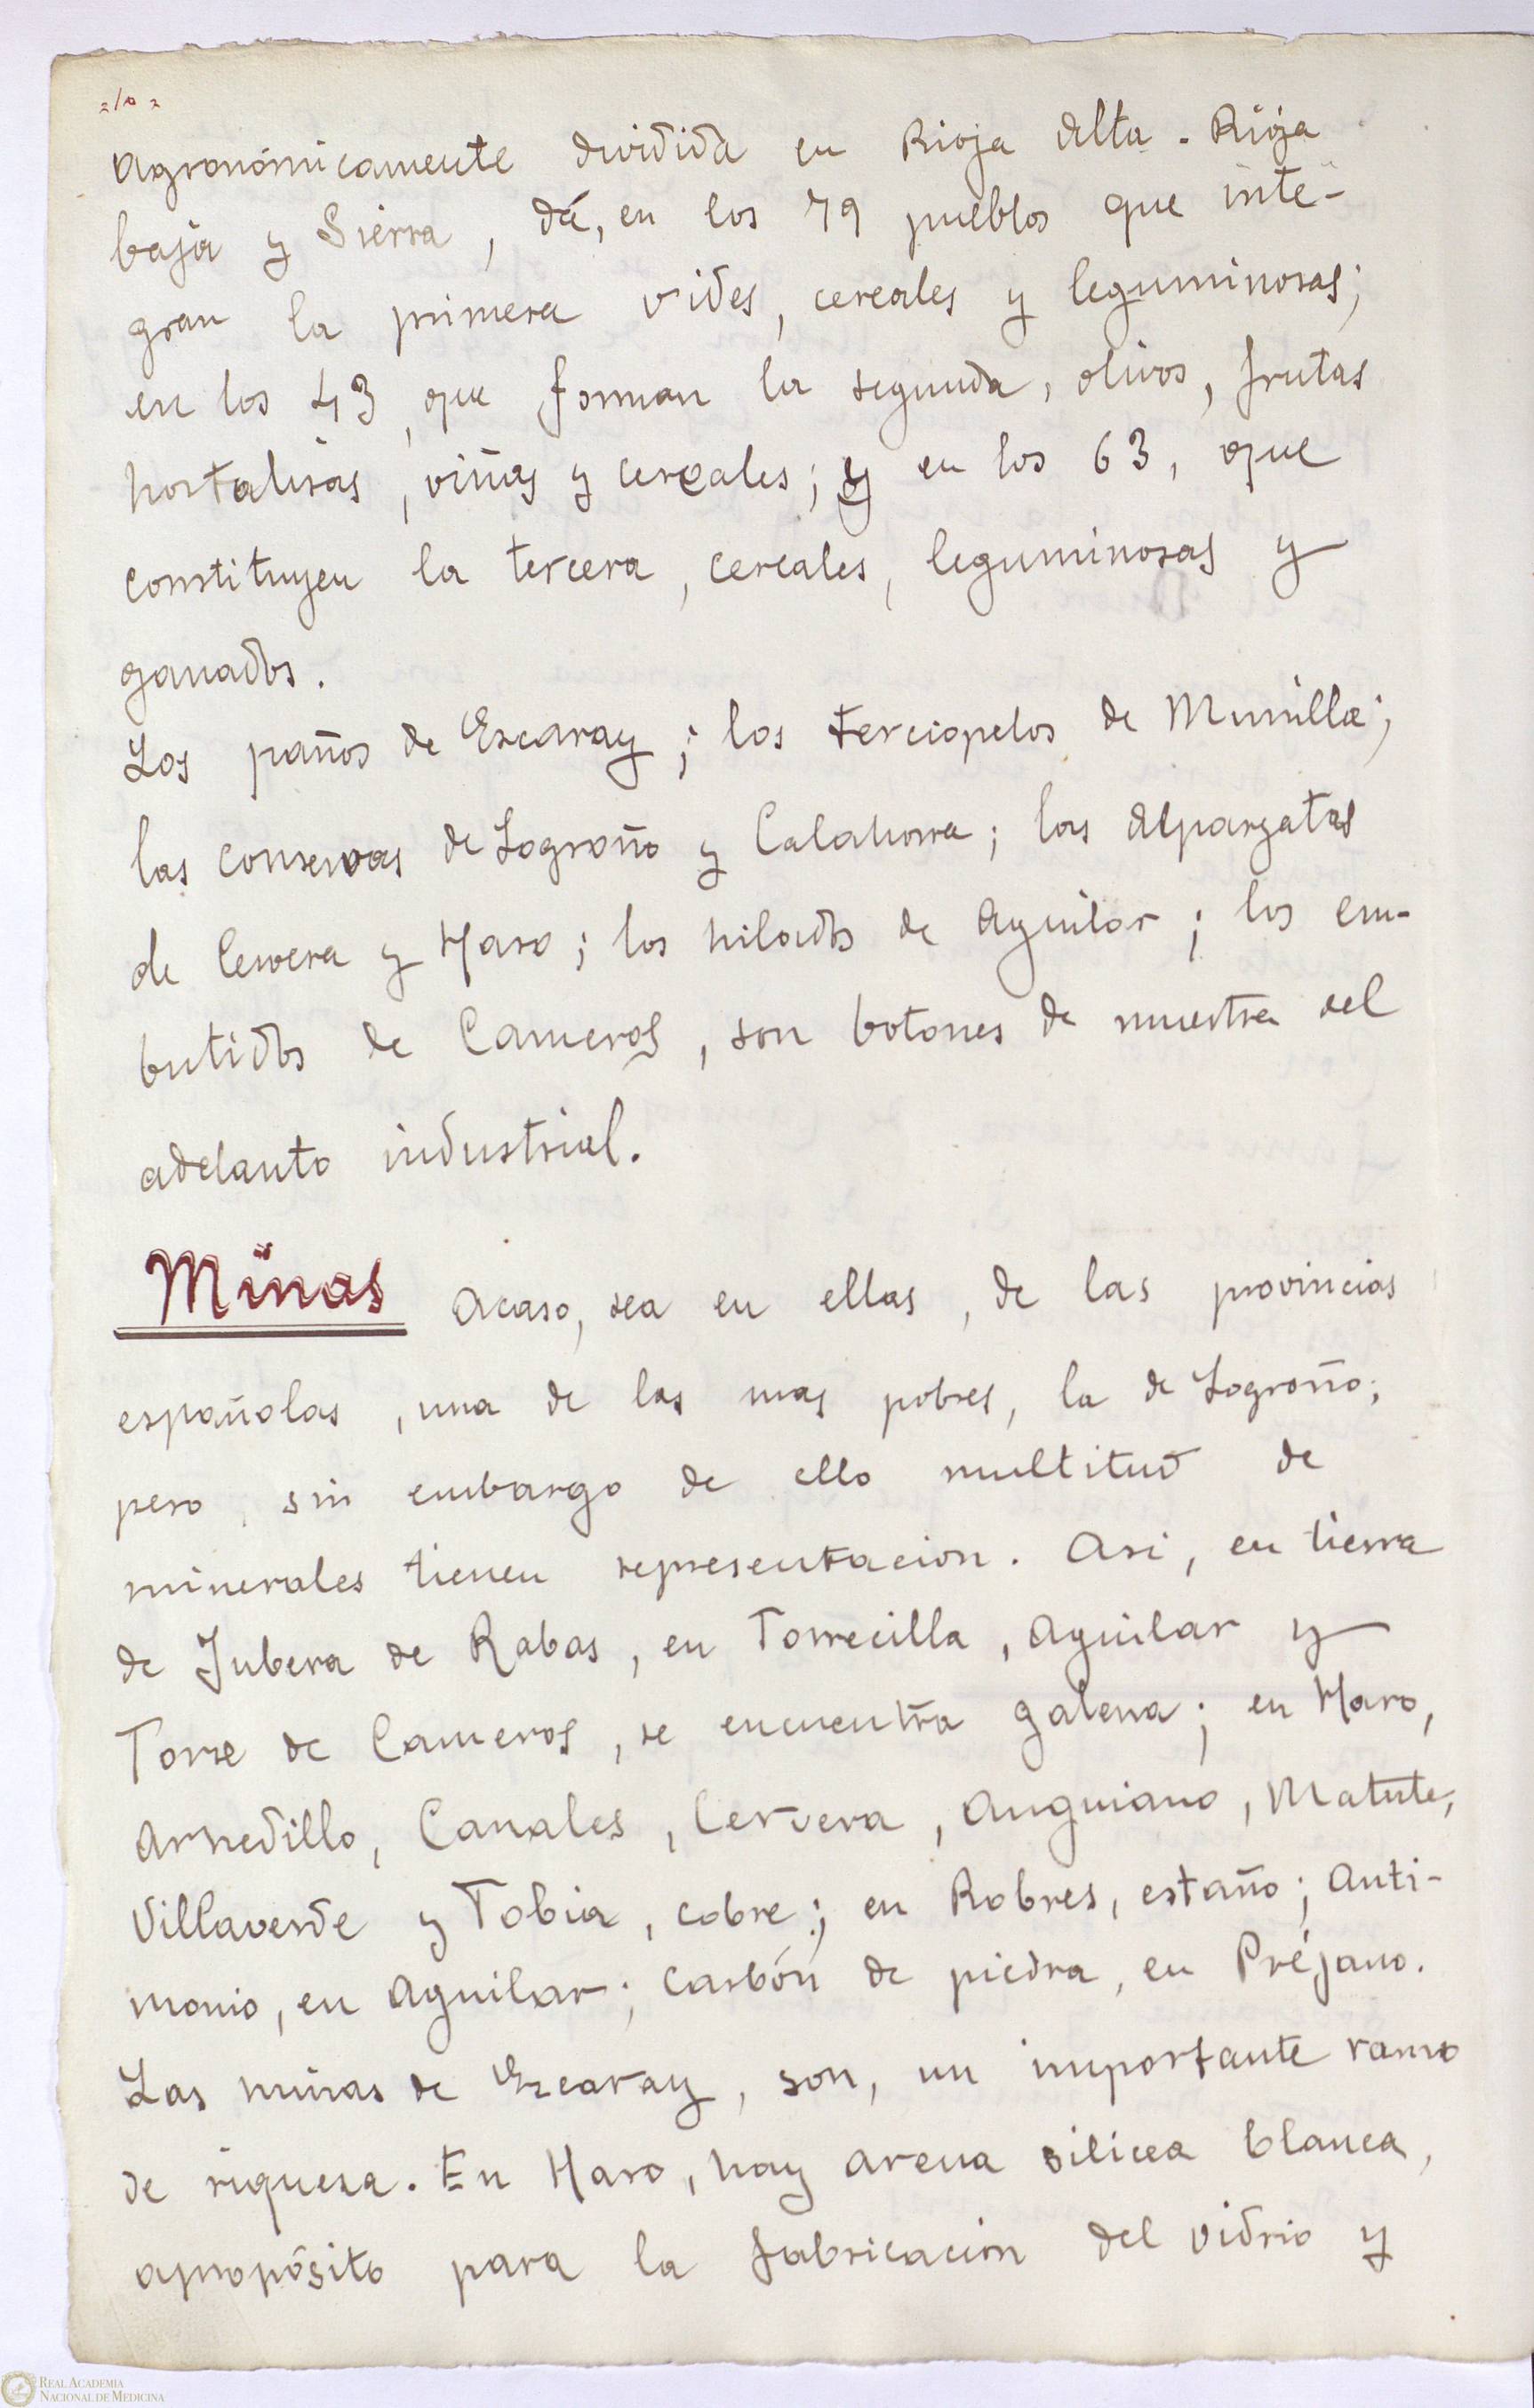 =10=
Agronómicamente dividida en Rioja Alta. Rioja
baja y Sierra, dá, en los 79 pueblos que inte-
gran la primera vides, cereales y leguminosas;
en los 43, que forman la segunda, olivos, frutas
hortalisas, viñas y cereales; y en los 63, que
constituyen la tercera, cereales, leguminosas y
ganados.
Los paños de Ezcaray; los terciopelos de Munilla;
las conservas de Logroño y Calahorra; las alpargatas
de Cervera y Haro; los hilados de Aguilar; los em-
butidos de Cameros, son botones de muestra del
adelanto industrial.
Minas Acaso, sea en ellas, de las provincias
españolas, una de las mas pobres, la de Logroño;
pero, sin embargo de ello multitud de
minerales tienen representacion. Asi, en tierra
de Jubera de Rabas, en Torrecilla, Aguilar y
Torre de Cameros, se encuentra galena; en Haro,
Arnedillo, Canales, Cervera, Anguiano, Matute,
Villaverde y Tobia, cobre; en Robres, estaño; Anti-
monio, en Aguilar; Carbón de piedra, en Préjano.
Las minas de Ezcaray, son, un importante ramo
de riquesa. En Haro, hay arena silicea blanca,
apropósito para la fabricacion del vidrio y
REAL ACADEMIA
NACIONAL DE MEDICINA